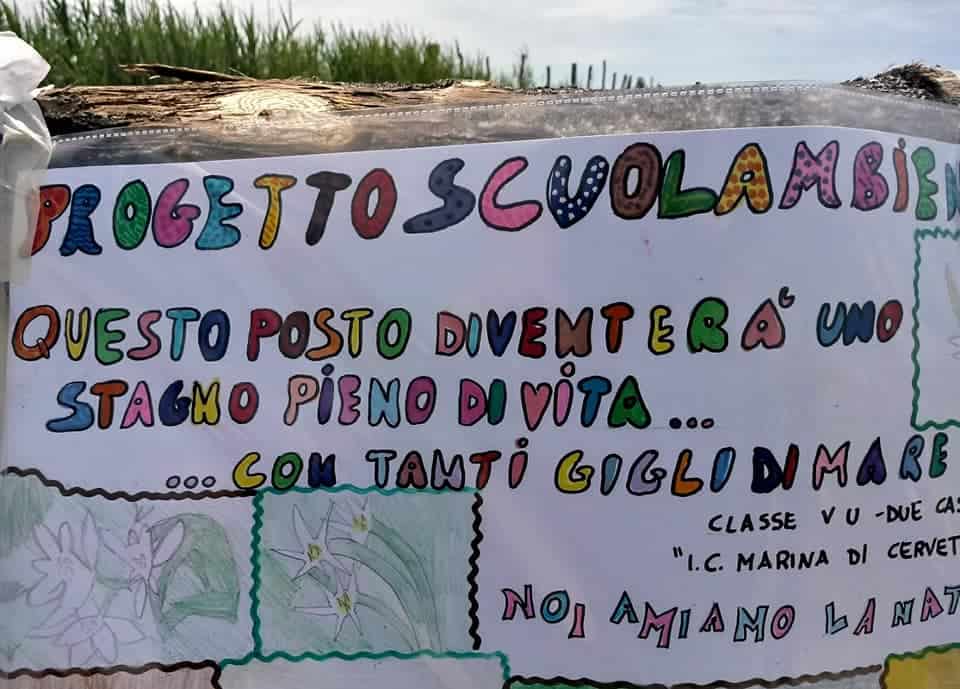 PROGETTO SCUOLAMBIEN
QUESTO POSTO DIVENTERÀ UNO
STAGNO PIENO DI VITA ...
... CON TANTI GIGLI DI MARE
CLASSE V U - DUE CAS
"I.C. MARINA DI CERVET
NOI AMIAMO LA NAT